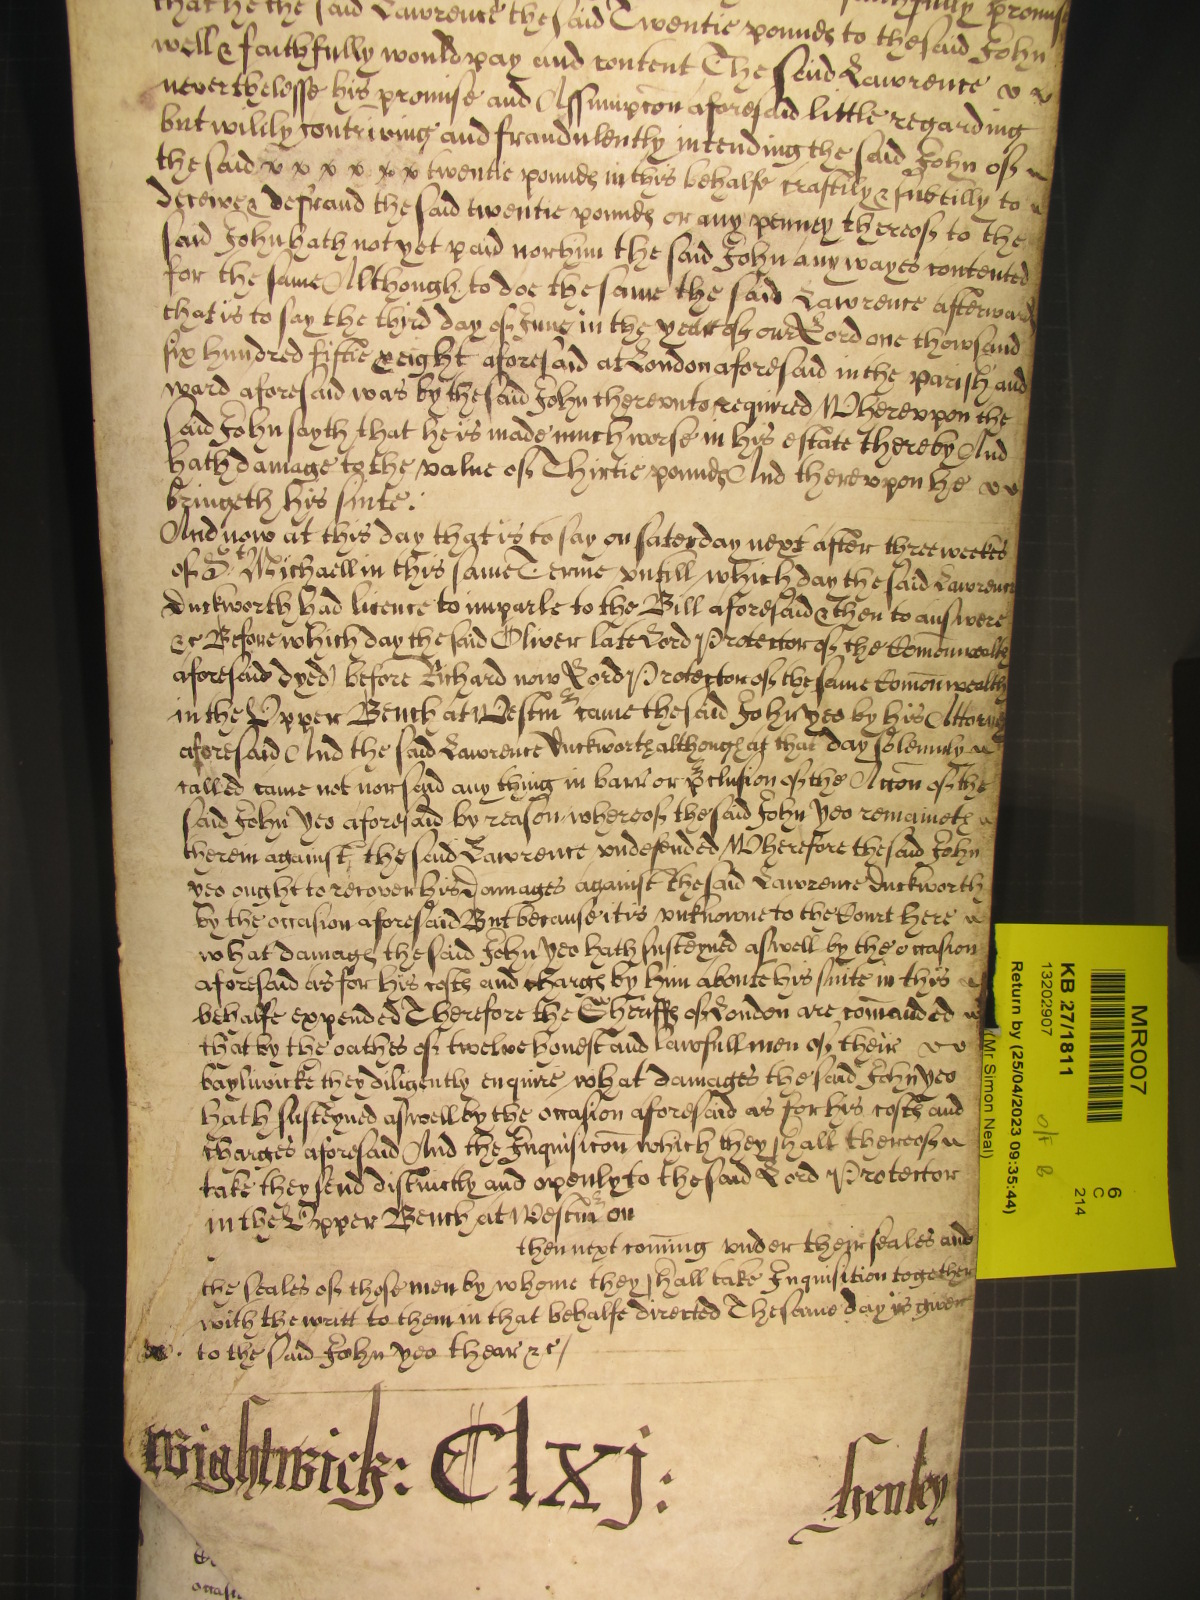 that he the said Lawrence the said Twentie pounds to the said John
well & faithfully would pay and content The said Lawrence
neverthelesse his promise and Assumpcon aforesaid little regarding
but wilily contriving and fraudulently intending the said John of
the said twentie pounds in this behalfe craftily & subtilly to
deceive & defraud the said twentie pounds or any penney thereof to the
said John hath not yet paid nor him the said John any wayes contented
for the same Although to doe the same the said Lawrence afterward
that is to say the third day of June in the year of our Lord one thowsand
six hundred fiftie & eight aforesaid at London aforesaid in the parish and
ward aforesaid was by the said John thereunto required Whereupon the
said John sayth that he is made much worse in his estate thereby And
hath damage to the value of Thirtie pounds And thereupon he
bringeth his suite.
And now at this day that is to say on saterday next after three weekes
of St Michaell in this same Terme untill which day the said Lawrence
Duckworth had licence to imparle to the Bill aforesaid & then to answere
&c Before which day the said Oliver late Lord Protector of the Comonwealth
aforesaid dyed) before Richard now Lord Protector of the same Comonwealth
in the Upper Bench at Westm came the said John Yeo by his Attorney
aforesaid And the said Lawrence Duckworth although at that day solemnly
called came not nor said any thing in barr or pclusion of the Accon of the
said John Yeo aforesaid by reason whereof the said John Yeo remaineth
therein against the said Lawrence undefended Wherefore the said John
Yeo ought to recover his Damages against the said Lawrence Duckworth
by the occasion aforesaid But because it is unknowne to the Court here
what damages the said John Yeo hath susteyned aswell by the occasion
aforesaid as for his costs and charges by him aboute his suite in this
behalfe expended Therefore the Sheriffs of London are comanded
that by the oathes of twelve honest and lawfull men of their
bayliwicke they diligently enquire what damages the said John Yeo
hath susteyned aswell by the occasion aforesaid as for his costs and
charges aforesaid And the Inquisicon which they shall thereof
take they send distinctly and openly to the said Lord Protector
in the Upper Bench at Westm on
then next coming under their seales and
the seales of those men by whome they shall take Inquisition together
with the writt to them in that behalfe directed The same day is given
to the said John Yeo thear &c/
Wightwick: Clxj: henley
MR007
6
C
214
KB 27/1811
13202907
O/F B
Return by (25/04/2023 09:35:44)
(Mr Simon Neal)